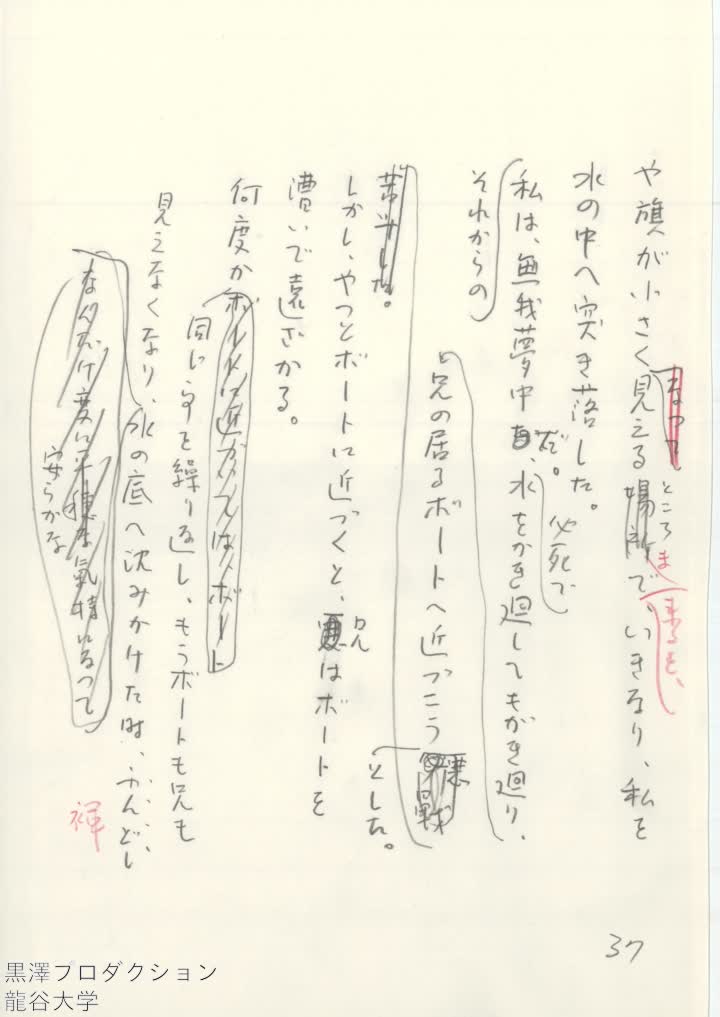 や旗が小さく見える場所で、いきなり、私を
なって
ところ
ま
来ると、
水の中へ突き落した。
私は、無我夢中、水をかき廻してもがき廻り、
だ。
必死で
それからの
と兄の居るボートへ近づこう
とした。
苦斗した。
しかし、やっとボートに近づくと、はボートを
兄
漕いで遠ざかる。
何度かボートに近がってはボート
同じ事を繰り返し、もうボートも兄も
見えなくなり、水の底へ沈みかけた時、ふんどし
褌
なんだけ変に平穏な気持になって
安らかな
37
黒澤プロダクション
龍谷大学